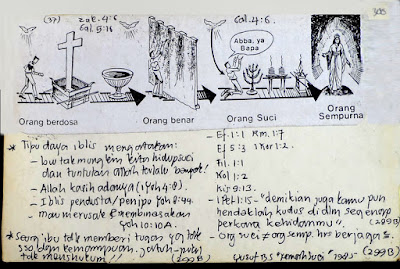 (37)
Zak. 4:6
Gal. 5:16
Gal. 4:6.
305
Abba, ya
Bapa
Orang berdosa
Orang benar
Orang Suci
Orang
Sempurna
* Tipu daya iblis mengatakan:
- bw tak mungkin kita hidup suci
dan tuntutan Allah terlalu
- Allah kasih adanya (1 Yoh 4:8).
- Iblis pendusta/penipu Yoh 8:44.
- mau merusak & membinasakan
Yoh 10:10A.
* Seorg ibu tdk memberi tugas yg tdk
dan kemampuan. jatuh
tdk menghukum!! (299B)
- Ef. 1:1 Rm. 1:7
- Ef 5:3 1 Kor 1:2.
- Fil. 1:1
- Kol 1:2
- Kis 9:13.
- 1 Pet 1:15 - "demikian juga kamu pun
hendaklah kudus di dlm segenap
perkara kehidupanmu". (299B)
- org suci ≠ org semp. hrs berjaga2.
Yusuf BS 1985 (299B)